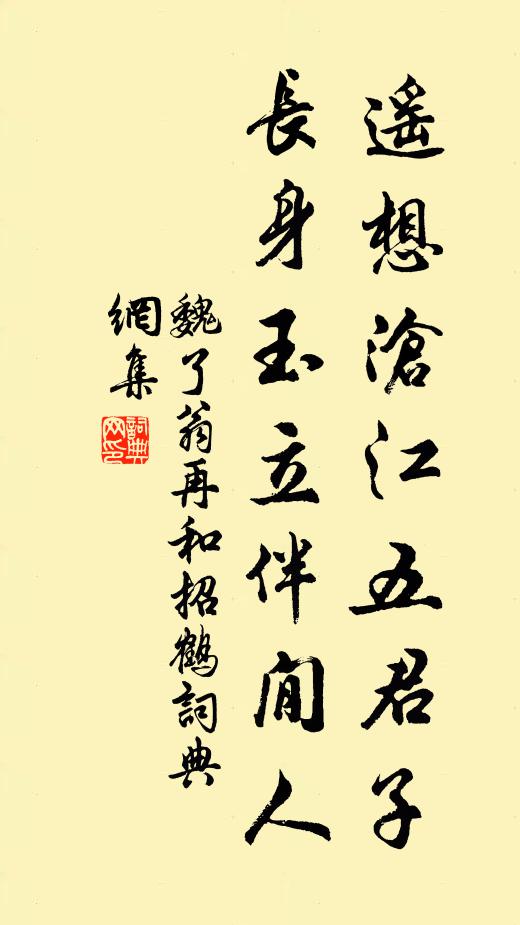 遥想滄江五君子
長身玉立伴閒人
魏了翁再和招鶴詞典
網集
詞典
网印